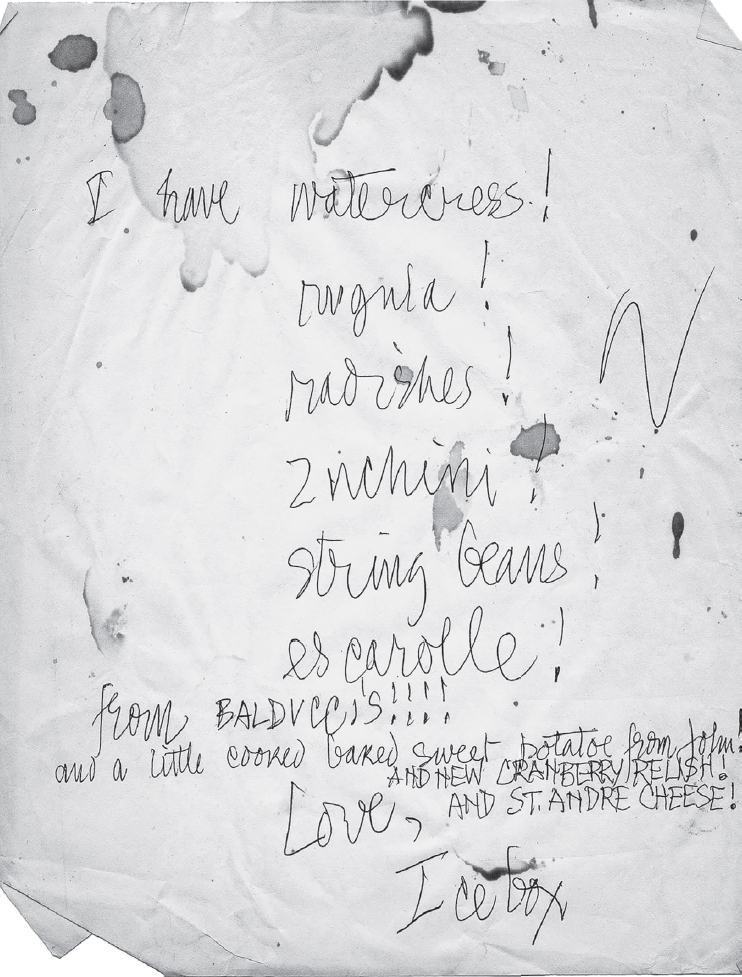 I have watercress!
rugula!
radishes!
Zuchini!
string beans!
escarolle!
from BALDUCCIS!!!!
and a little cooked baked sweet potatoe from John!
AND NEW CRANBERRY RELISH!
AND ST. ANDRE CHEESE!
Love,
Icebox